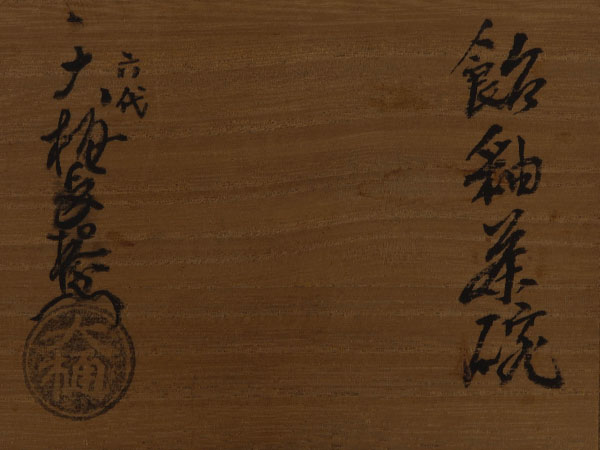 飴釉茶碗
六代
大樋長左衛門
大樋